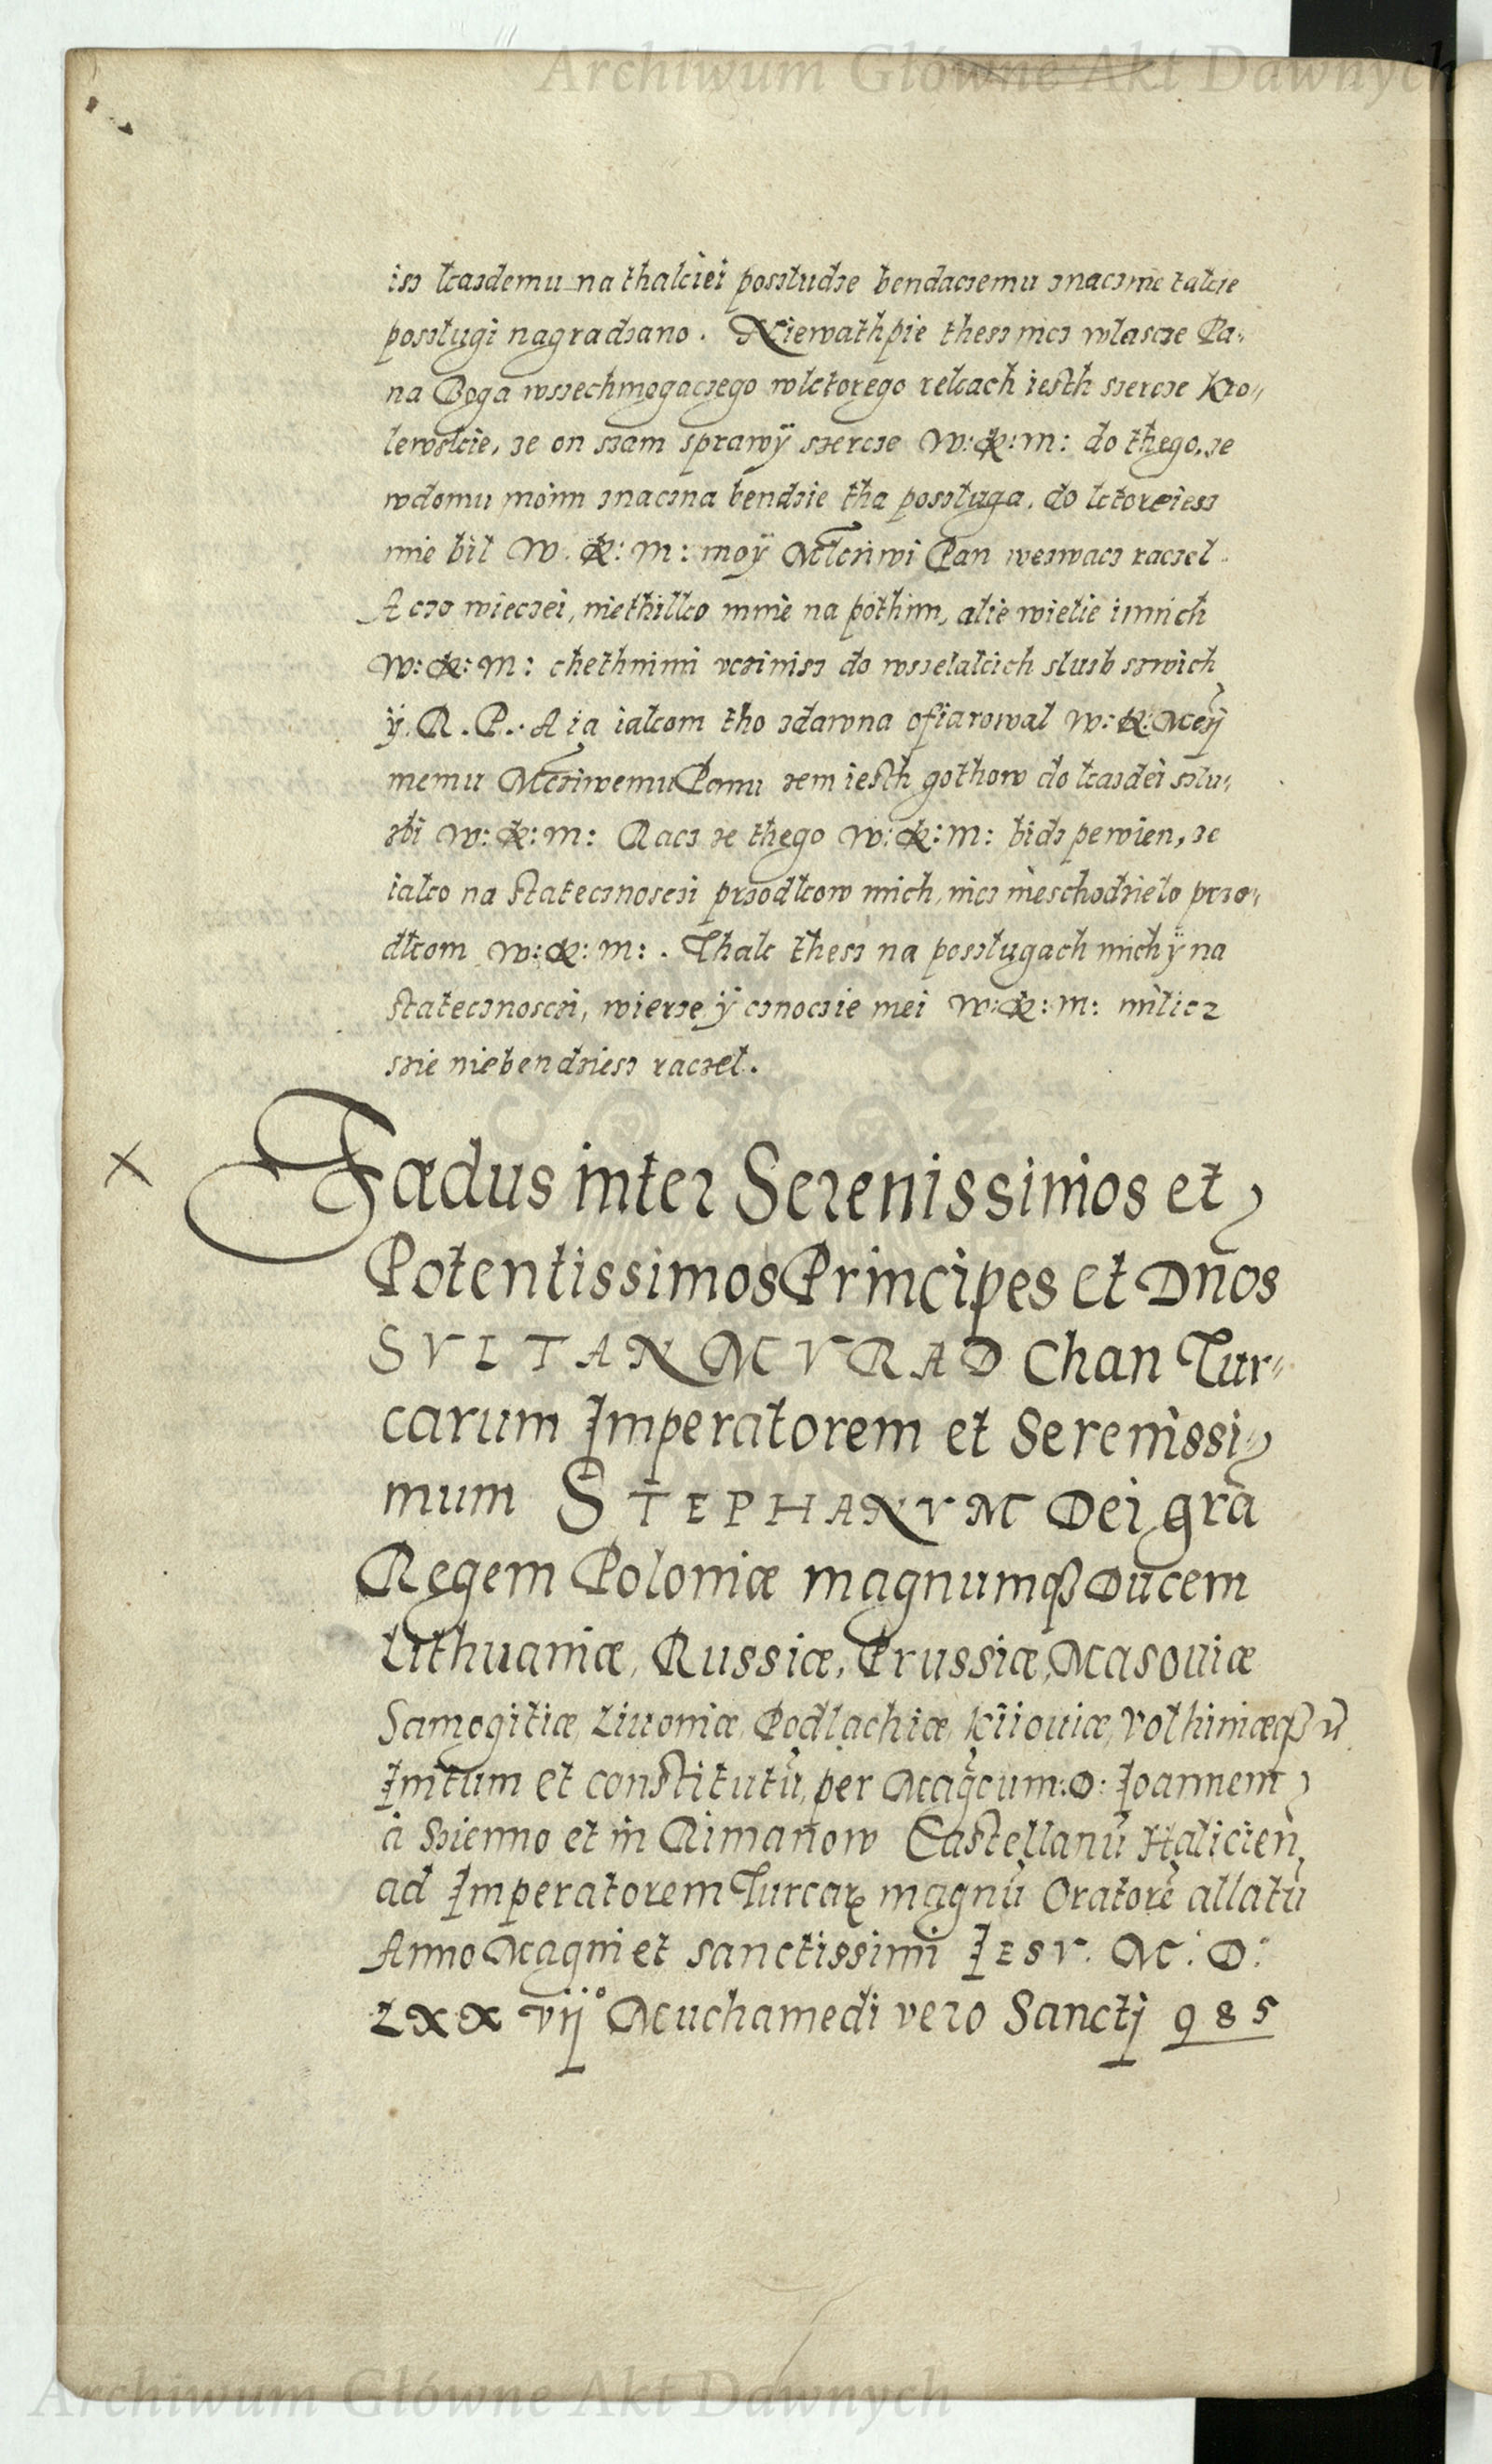 Archiwum Główne Akt Dawnych
isz kazdemu na thakiei poszludze bendaczemu znacznie takie
poszlugi nagradzano. Niewathpie thesz nicz wlascze Pa-
na Boga wszechmogaczego wktorego rekach iesth szercze Kro-
lewskie, ze on szam sprawÿ szercze W: K: M: do thego, ze
wdomu moim znaczna bendzie tha poszluga, do ktoreiesz
mie bil W. K: M: moÿ Mczńwi Pan weswacz raczel.
A czo wieczei, niethilko mnie na pothim, alie wielie innich
W: K: M: chethnimi vczinisz do wszelakich sluzb szwich
ÿ. R. P. A ia iakom tho zdawna ofiarowal W: K: Mcÿ
memu Mcziwemu Panu zem iesth gothow do kazdei szlu-
zbi W: K: M: Racz ze thego W: K: M: bidz pewien, ze
iako na statecznosczi przodkow mich, nicz nieschodzielo przo-
dkom W: K: M:. Thak thesz na poszlugach mich ÿ na
statecznosczi, wierze ÿ cznoczie mei W: K: M: milicz
szie niebendziesz raczel.
Fædus inter Serenissimos et
Potentissimos Principes et Dños
SVLTAN MVRAD Chan Tur-
carum Imperatorem et Serenissi-
mum STEPHANVM Dei gra
Regem Poloniæ magnumqȝ Ducem
Lithuaniæ, Russiæ, Prussiæ, Masouiæ
Samogitiæ, Liuoniæ, Podlachiæ, Kiiouiæ, Volhiniæqȝ
Initum et constitutũ, per Magcum: D: Ioannem
à Szienno et in Rimanow Castellanũ Halicien̄,
ad Imperatorem Turcaꝝ magnũ Oratorẽ allatũ
Anno Magni et sanctissimi IESV. M: D:
LXXvij° Muchamedi vero Sanctj 985
Archiwum Główne Akt Dawnych